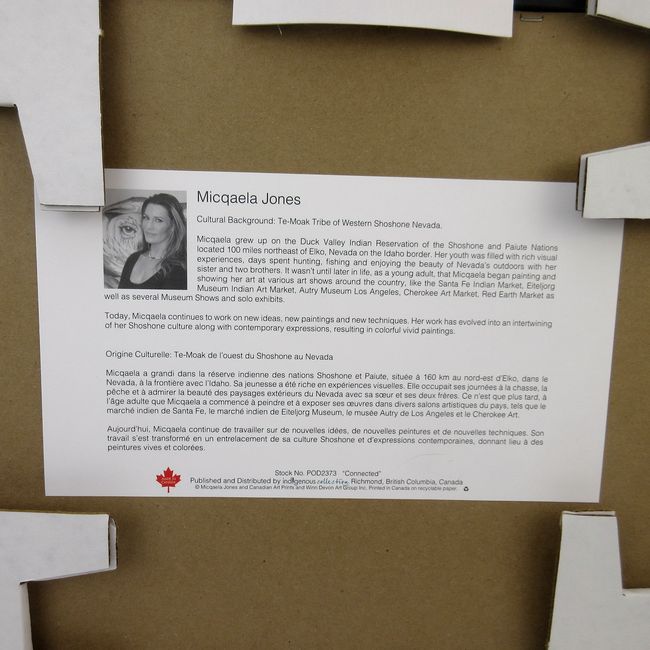 Micqaela Jones
Cultural Background: Te-Moak Tribe of Western Shoshone Nevada.
Micqaela grew up on the Duck Valley Indian Reservation of the Shoshone and Paiute Nations
located 100 miles northeast of Elko, Nevada on the Idaho border. Her youth was filled with rich visual
experiences, days spent hunting, fishing and enjoying the beauty of Nevada's outdoors with her
sister and two brothers. It wasn't until later in life, as a young adult, that Micqaela began painting and
showing her art at various art shows around the country, like the Santa Fe Indian Market, Eiteljorg
Museum Indian Art Market, Autry Museum Los Angeles, Cherokee Art Market, Red Earth Market as
well as several Museum Shows and solo exhibits.
Today, Micqaela continues to work on new ideas, new paintings and new techniques. Her work has evolved into an intertwining
of her Shoshone culture along with contemporary expressions, resulting in colorful vivid paintings.
Origine Culturelle: Te-Moak de l'ouest du Shoshone au Nevada
Micqaela a grandi dans la réserve indienne des nations Shoshone et Paiute, située à 160 km au nord-est d'Elko, dans le
Nevada, à la frontière avec l'Idaho. Sa jeunesse a été riche en expériences visuelles. Elle occupait ses journées à la chasse, la
pêche et à admirer la beauté des paysages extérieurs du Nevada avec sa sœur et ses deux frères. Ce n'est que plus tard, à
l'âge adulte que Micqaela a commencé à peindre et à exposer ses œuvres dans divers salons artistiques du pays, tels que le
marché indien de Santa Fe, le marché indien de Eiteljorg Museum, le musée Autry de Los Angeles et le Cherokee Art.
Aujourd'hui, Micqaela continue de travailler sur de nouvelles idées, de nouvelles peintures et de nouvelles techniques. Son
travail s'est transformé en un entrelacement de sa culture Shoshone et d'expressions contemporaines, donnant lieu à des
peintures vives et colorées.
Stock No. POD2373 "Connected"
Published and Distributed by indigenous collection, Richmond, British Columbia, Canada
© Micqaela Jones and Canadian Art Prints and Winn Devon Art Group Inc. Printed in Canada on recyclable paper.